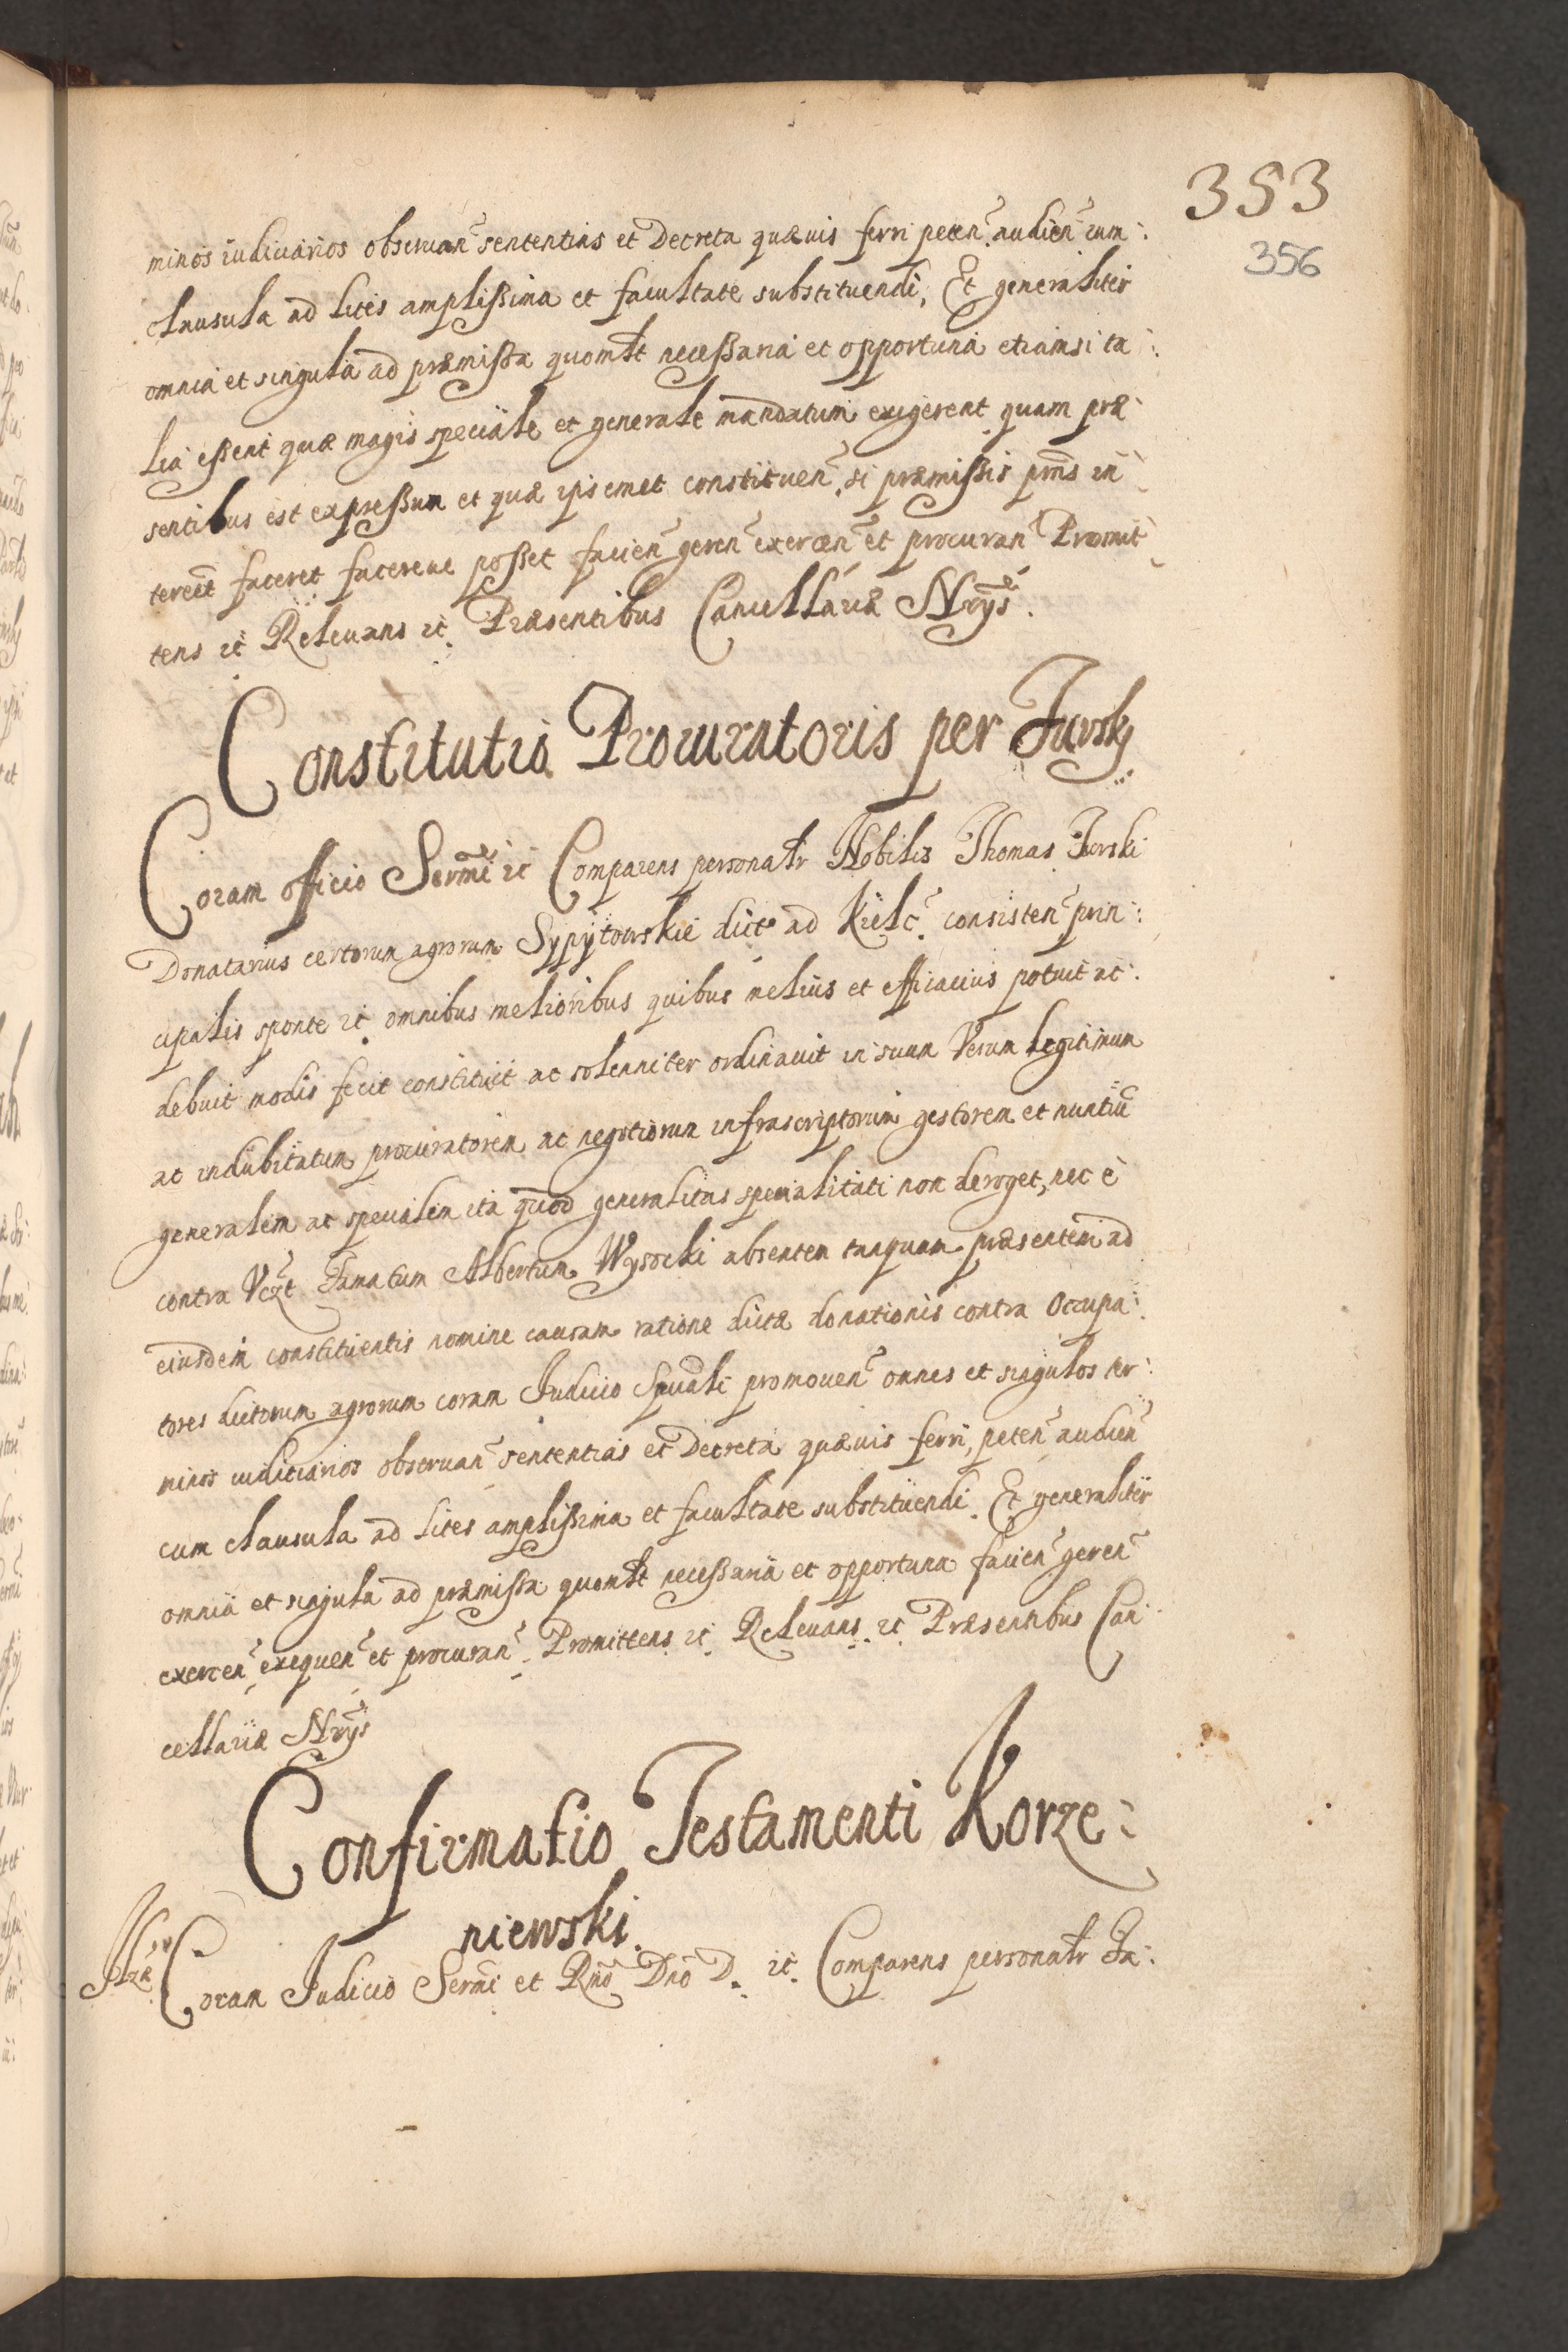 353
356
minos iudiciarios obseruan̄ sententias et Decreta quæuis ferri peten̄ audien̄ cum
clausula ad lites amplißima et facultate substituendi, Et generaliter
omnia et singula ad præmißa quomlt neceßaria et opportuna etiamsi ta:
lia eßent quæ magis speciale et generale mandatum exigerent quam præ
sentibus est expreßum et quæ ipsemet constituen̄ si præmißis pn̄s in
tereēt faceret facereue poßet facien̄ geren̄ exercen̄ et procuran̄ Promit
tens et Releuans et Præsentibus Cancellariæ Nr̄ys.
Constitutio Procuratoris per Jursky
Coram officio Serm̄i et Comparens personatr Nobilis Thomas Jurski
Donatarius certorum agrorum Sypytowskie dict ad Kielc̄. consisten̄ prin:
cipalis sponte et omnibus melioribus quibus melius et efficacius potuit ac
debuit modis fecit constituit ac solenniter ordinauit in suum Verum legitimum
ac indubitatum procuratorem ac negotiorum infrascriptorum gestorem et nuntiū
generalem ac specialem ita quod generalitas specialitati non deroget, nec ē
contra Vczt Famatum Albertum Wysocki absentem tanquam præsentem ad
eiusdem constituentis nomine causam ratione dictæ donationis contra Occupa:
tores dictorum agrorum coram Judicio Spuali promouen̄ omnes et singulos ter:
minos iuditiarios obseruan̄ sententias et Decreta quæuis ferri, peten̄ audien̄
cum clausula ad lites amplißima et facultate substituendi. Et generaliter
omnia et singula ad præmißa quomlt neceßaria et opportuna facien̄ geren̄
exercen̄ exequen̄ et procuran̄. Promittens et Releuans et Præsentibus Can
cellariæ Nr̄ys
Confirmatio Testamenti Korze:
niewski.
Coram Judicio Serm̄i et Rn̄d Dn̄o D. et. Comparens personatr Fa: